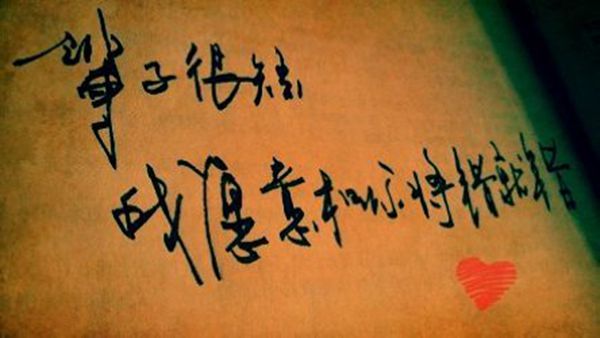 一辈子很短
我愿意和你将错就错